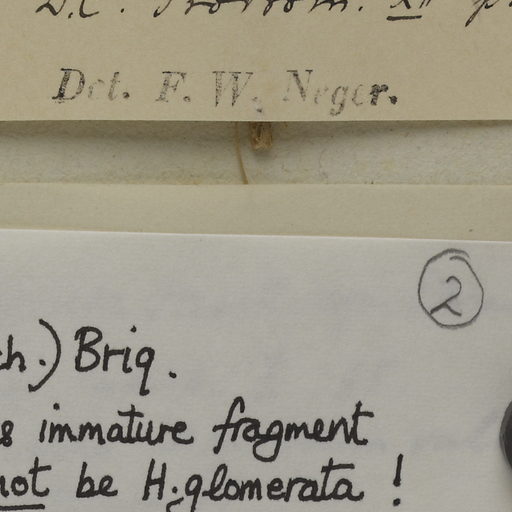 D.C. Prodrom. XII p
Det. F. W. Neger.
2
ch.) Briq.
s immature fragment
not be H. glomerata !